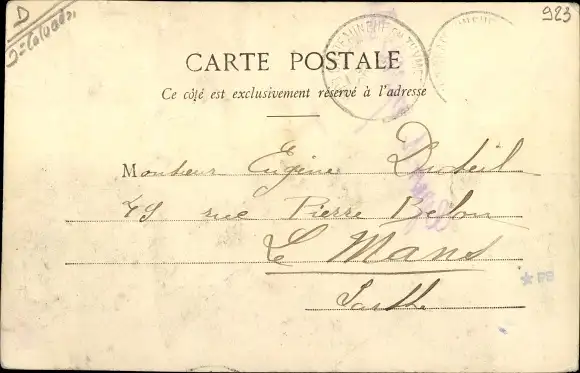 D
923
CARTE POSTALE
Ce côté est exclusivement réservé à l'adresse
Monsieur Eugène Duteil
49 rue Pierre Belon
Le Mans
Sarthe